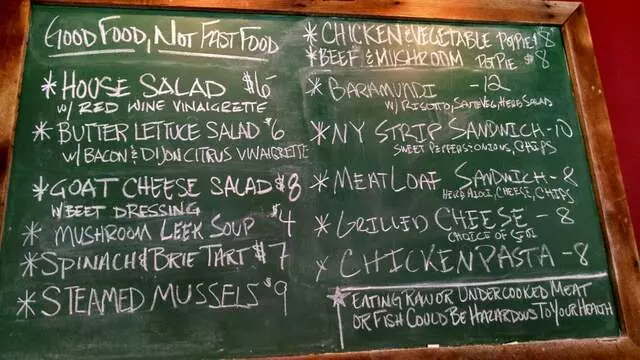 GOOD FOOD, NOT FAST FOOD
* HOUSE SALAD $6
W/ RED WINE VINAIGRETTE
* BUTTER LETTUCE SALAD $6
W/ BACON & DIJON CITRUS VINAIGRETTE
* GOAT CHEESE SALAD $8
W/ BEET DRESSING
* MUSHROOM LEEK SOUP $4
* SPINACH & BRIE TART $7
* STEAMED MUSSELS $9
* CHICKEN & VEGETABLE POTPIE $8
* BEEF & MUSHROOM POTPIE $8
* BARAMUNDI - 12
W/ RISOTTO, SAUTE VEG, HERB SALAD
* NY STRIP SANDWICH - 10
SWEET PEPPERS & ONIONS, CHIPS
* MEATLOAF SANDWICH - 8
HERB AIOLI, CHEESE, CHIPS
* GRILLED CHEESE - 8
CHOICE OF
* CHICKEN PASTA - 8
* EATING RAW OR UNDERCOOKED MEAT
OR FISH COULD BE HAZARDOUS TO YOUR HEALTH